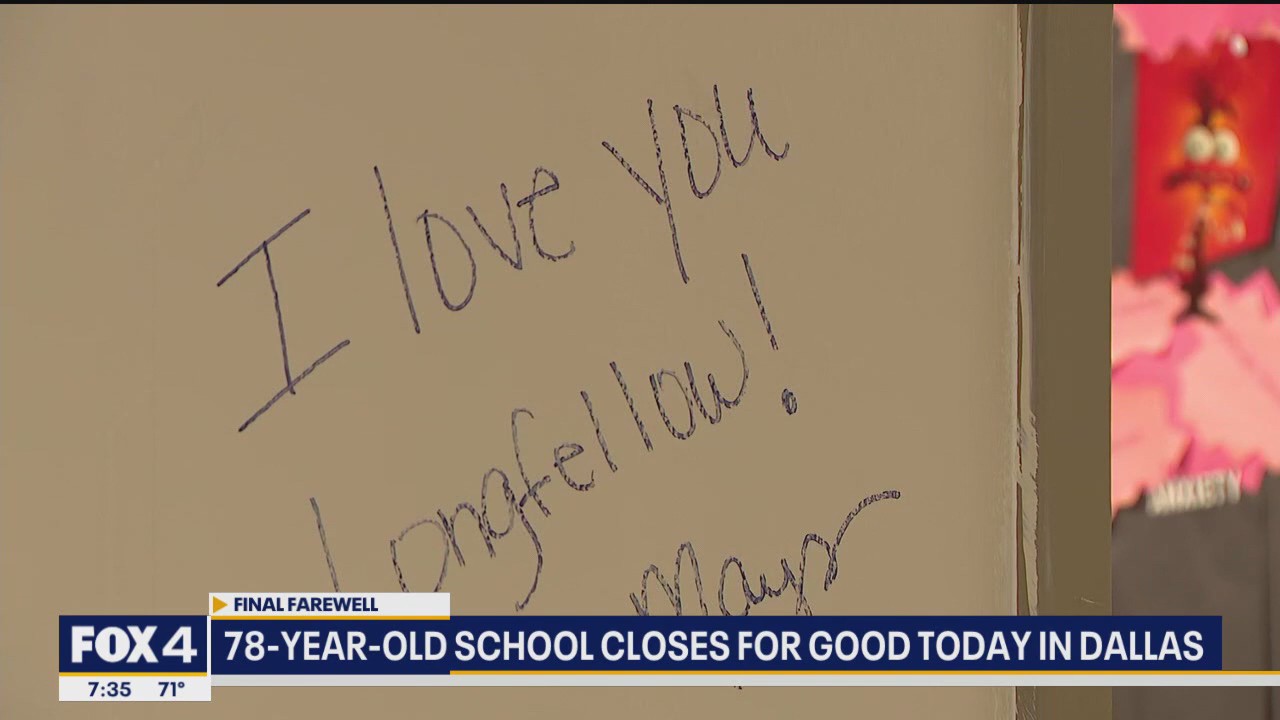 I love you
Longfellow!
ANXIETY
FINAL FAREWELL
FOX 4
78-YEAR-OLD SCHOOL CLOSES FOR GOOD TODAY IN DALLAS
7:35 71°